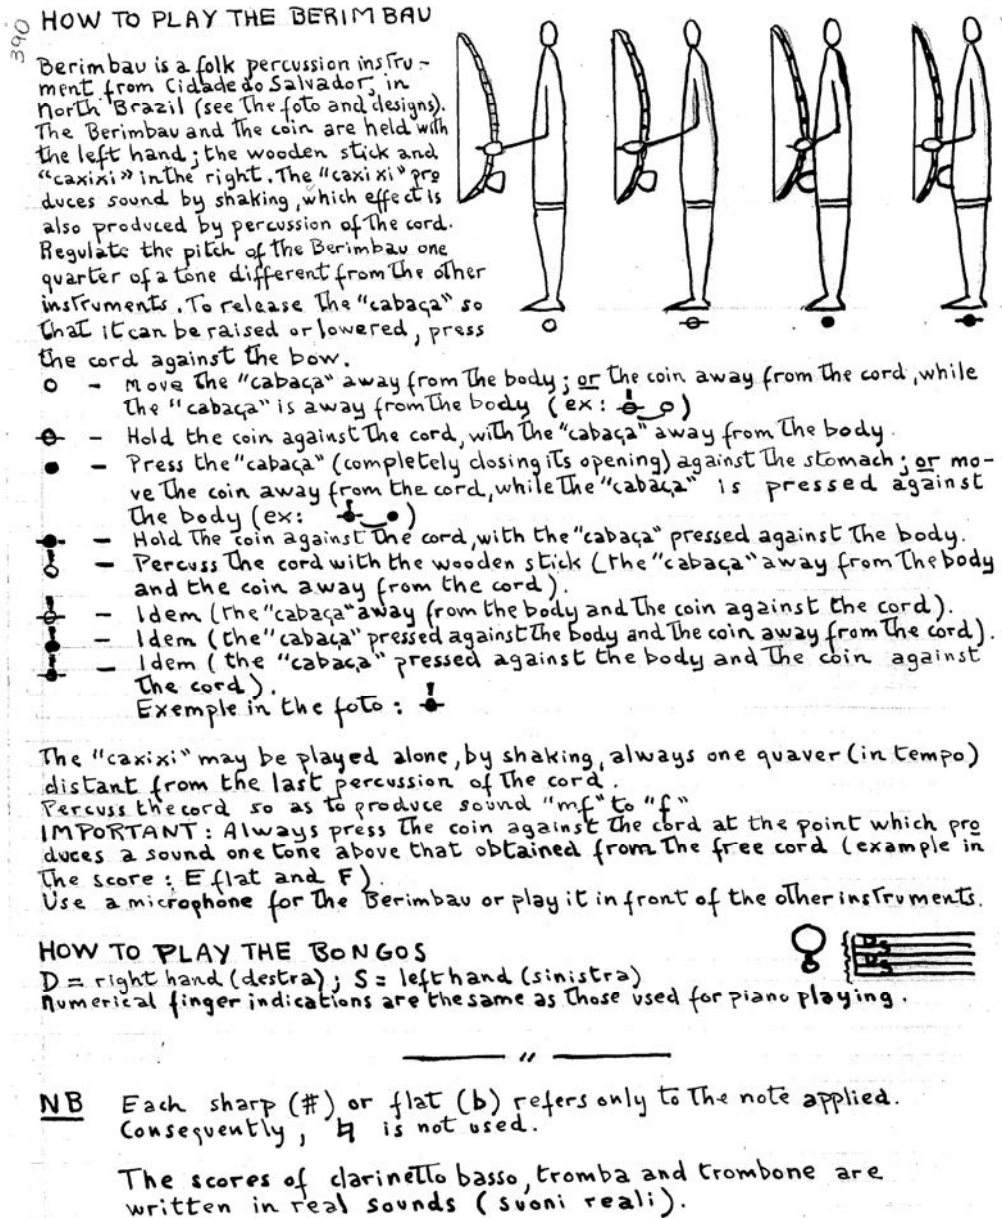 390
HOW TO PLAY THE BERIMBAU
Berimbau is a folk percussion instru-
ment from Cidade do Salvador, in
North Brazil (see the foto and designs).
The Berimbau and the coin are held with
the left hand; the wooden stick and
"caxixi" in the right. The "caxixi" pro
duces sound by shaking, which effect is
also produced by percussion of the cord.
Regulate the pitch of the Berimbau one
quarter of a tone different from the other
instruments. To release the "cabaça" so
that it can be raised or lowered, press
the cord against the bow.
- Move the "cabaça" away from the body; or the coin away from the cord, while
the "cabaça" is away from the body (ex: )
- Hold the coin against the cord, with the "cabaça" away from the body.
- Press the "cabaça" (completely closing its opening) against the stomach; or mo-
ve the coin away from the cord, while the "cabaça" is pressed against
the body (ex: )
- Hold the coin against the cord, with the "cabaça" pressed against the body.
- Percuss the cord with the wooden stick (the "cabaça" away from the body
and the coin away from the cord).
- Idem (the "cabaça" away from the body and the coin against the cord).
- Idem (the "cabaça" pressed against the body and the coin away from the cord).
- Idem (the "cabaça" pressed against the body and the coin against
the cord).
Exemple in the foto:
The "caxixi" may be played alone, by shaking, always one quaver (in tempo)
distant from the last percussion of the cord.
Percuss the cord so as to produce sound "mf" to "f"
IMPORTANT: Always press the coin against the cord at the point which pro
duces a sound one tone above that obtained from the free cord (example in
the score: E flat and F).
Use a microphone for the Berimbau or play it in front of the other instruments.
HOW TO PLAY THE BONGOS
D S
D S
D = right hand (destra); S = left hand (sinistra)
Numerical finger indications are the same as those used for piano playing.
"
NB Each sharp (#) or flat (b) refers only to the note applied.
Consequently, ♮ is not used.
The scores of clarinetto basso, tromba and trombone are
written in real sounds (suoni reali).